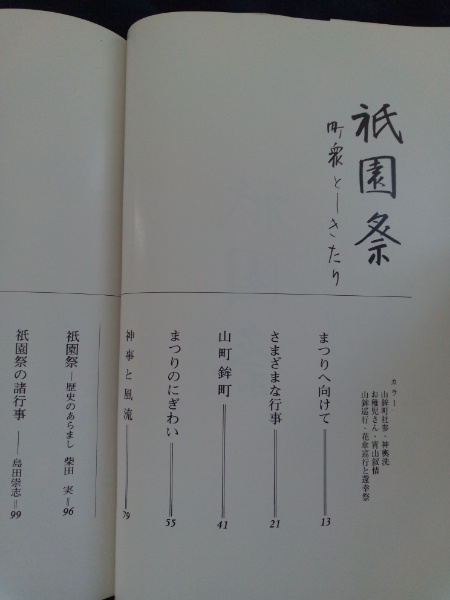 祇園祭
町衆としきたり
カラー
山鉾町社参・神輿洗
お稚児さん・宵山叙情
山鉾巡行・花傘巡行と還幸祭
まつりへ向けて 13
さまざまな行事 21
山町鉾町 41
まつりのにぎわい 55
神事と風流 79
祇園祭―歴史のあらまし 柴田 実 96
祇園祭の諸行事 ―― 島田崇志 99